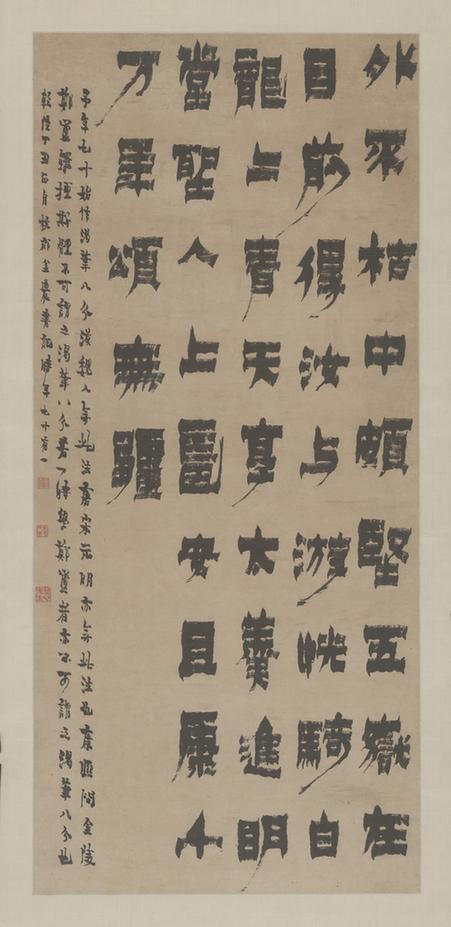 外枯中頗堅五嶽在
目前得汝与游恍騎白
龍上青天享太羹進明
堂聖人上安且康千
万年頌無疆
予年七十始作渴筆八分漢魏人無此法唐宋元明亦無此法也康熙間金陵
鄭簠雖擅斯體不可謂之渴筆八分若一時學鄭簠者亦不可謂之渴筆八分也
乾隆丁丑月杭郡金農記時年七十有一